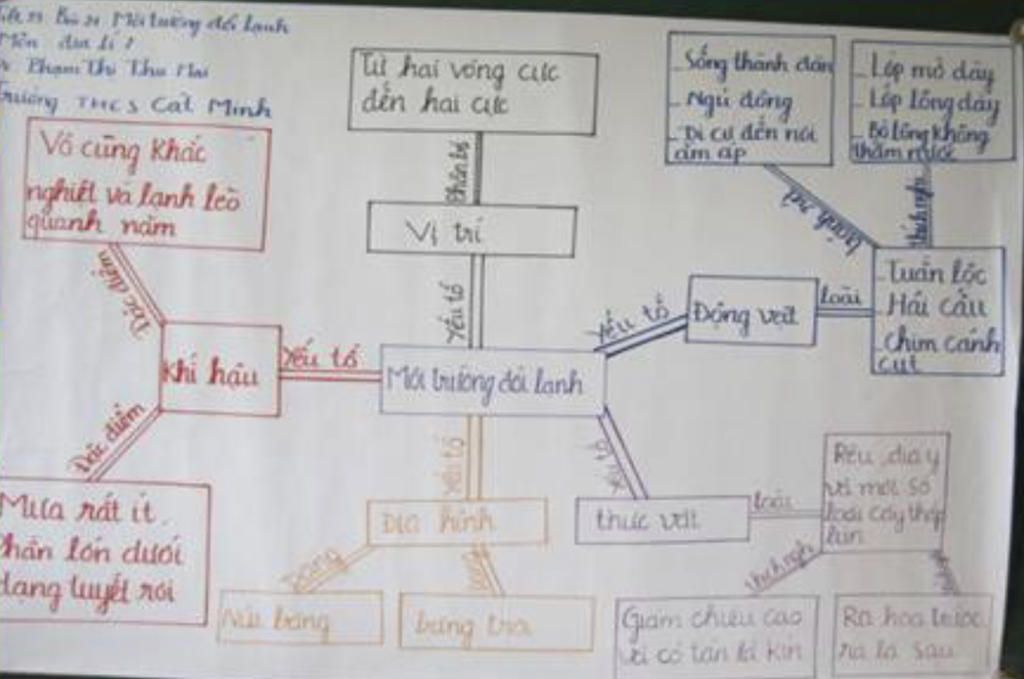 Bài 21 Môi trường đới lạnh
Môn địa lí 7
Phạm Thị Thu Mai
Trường THCS Cát Minh
Từ hai vòng cực
đến hai cực
Phân bố
Vị trí
Yếu tố
_ Sống thành đàn
_ Ngủ đông
_ Di cư đến nơi
ấm áp
_ Lớp mỡ dày
_ Lớp lông dày
_ Bộ lông không
thấm nước
tránh rét
thích nghi
_ Tuần lộc
_ Hải cẩu
_ chim cánh
cụt
loài
Động vật
Yếu tố
Vô cùng khắc
nghiệt và lạnh lẽo
quanh năm
Đặc điểm
khí hậu
Yếu tố
Môi trường đới lạnh
Đặc điểm
Mưa rất ít
Phần lớn dưới
dạng tuyết rơi
Yếu tố
Địa hình
Dạng
Núi băng
băng trôi
Yếu tố
thực vật
loài
Rêu, địa y
và một số
loài cây thấp
lùn
thích nghi
Giảm chiều cao
và có tán lá kín
Ra hoa trước,
ra lá sau